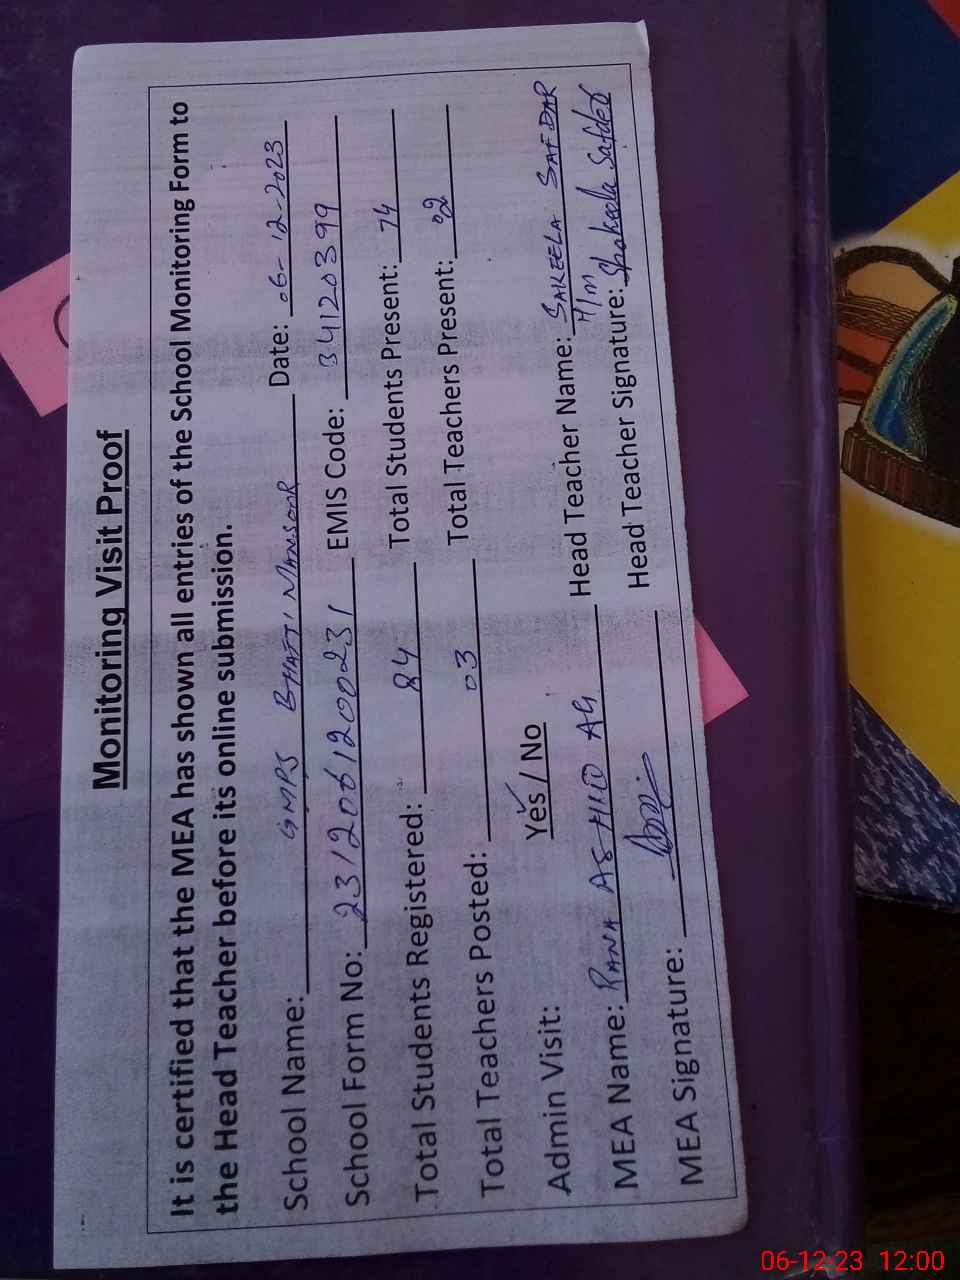 Monitoring Visit Proof
It is certified that the MEA has shown all entries of the School Monitoring Form to
the Head Teacher before its online submission.
School Name: GMPS BHATTI MANSOOR Date: 06-12-2023
School Form No: 2312061200231 EMIS Code: 34120399
Total Students Registered: 84 Total Students Present: 74
Total Teachers Posted: 03 Total Teachers Present: 02
Admin Visit: Yes / No
MEA Name: RANA Head Teacher Name: SAKEELA SAFDAR
H/M
MEA Signature: Head Teacher Signature: Shakeela Safdar
06-12-23 12:00